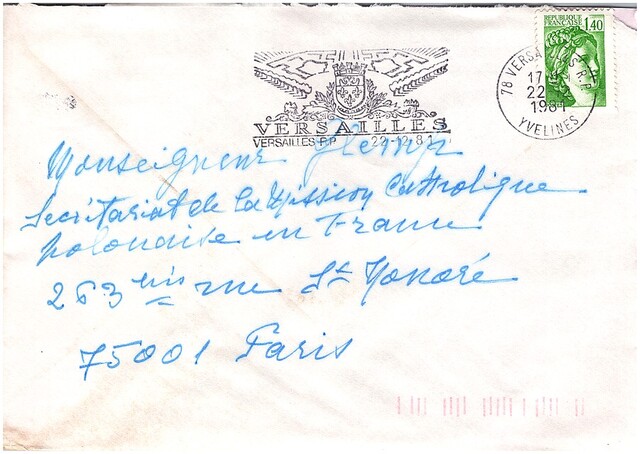 REPUBLIQUE
FRANÇAISE 1,40
78 VERSA R.P.
17
22
1981
YVELINES
VERSAILLES
VERSAILLES R.P 22.12.81
Monseigneur Glemp
Secrétariat de la Mission Catholique
polonaise en France
263 bis rue St Honoré
75001 Paris